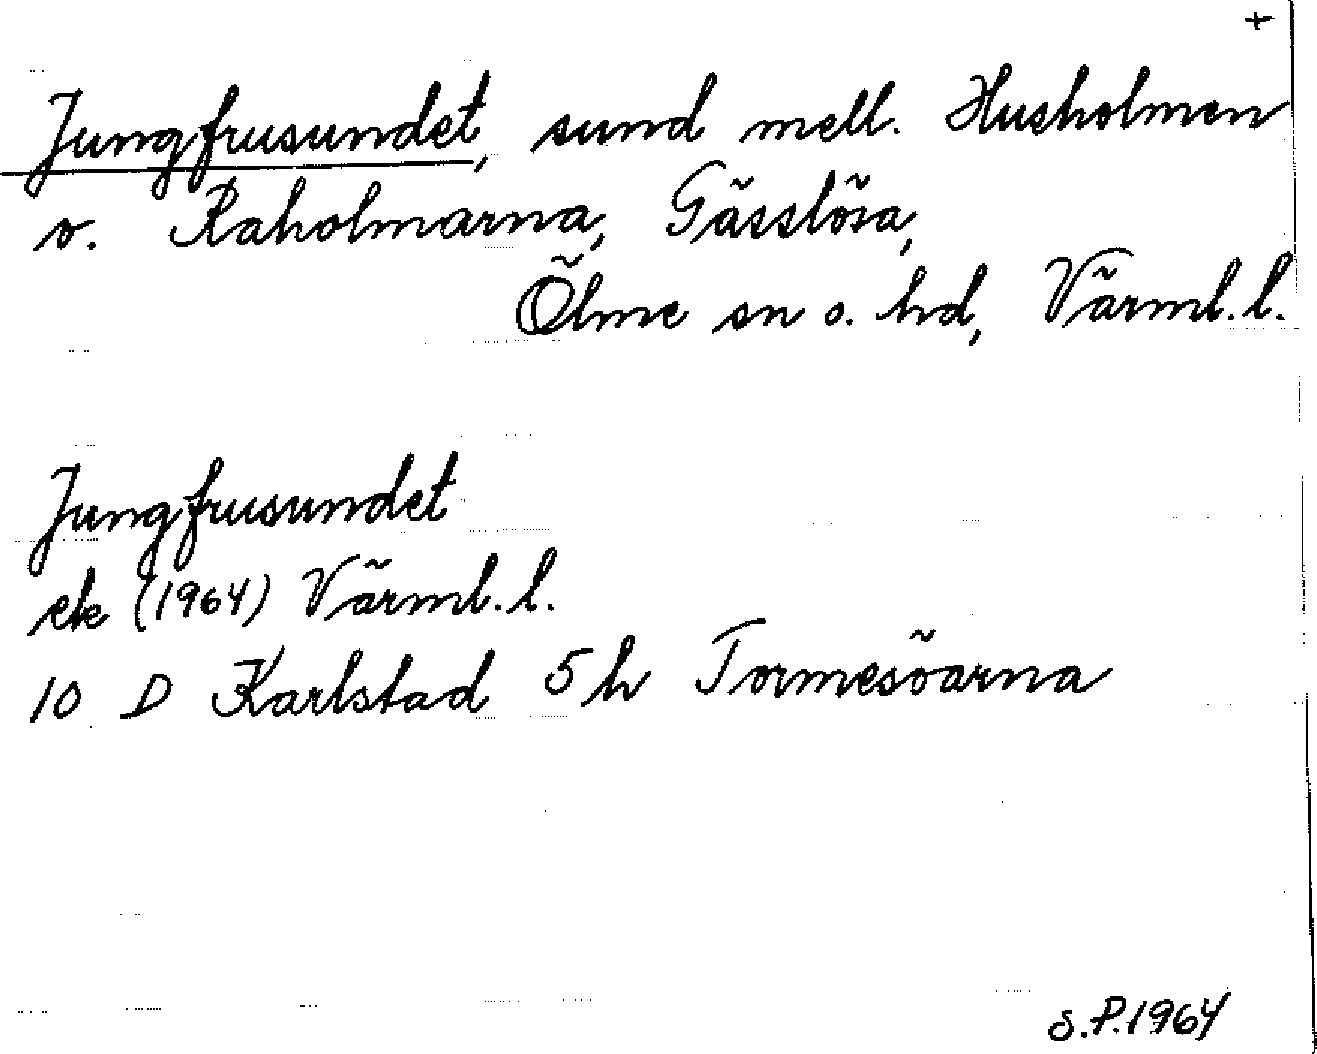 +
Jungfrusundet, sund mell. Husholmen
o. Raholmarna, Gässlösa,
Ölme sn o. hd, Värml. l.
Jungfrusundet
ek (1964) Värml. l.
10 D Karlstad 5 h Tormesöarna
S.P. 1964